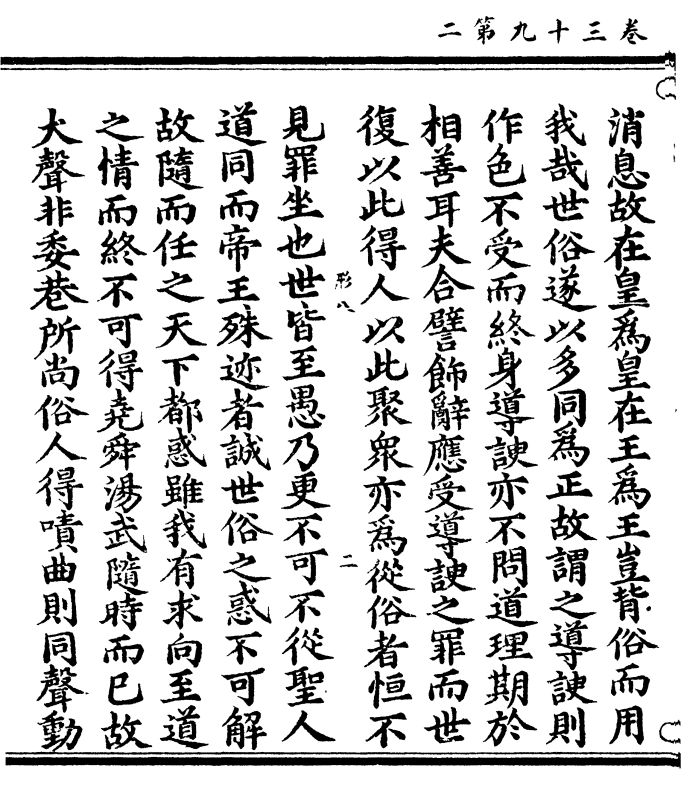 卷三十九第二
消息故在皇爲皇在王爲王豈背俗而用
我哉世俗遂以多同爲正故謂之導諛則
作色不受而終身導諛亦不問道理期於
相善耳夫合譬飾辭應受導諛之罪而世
復以此得人以此聚衆亦爲從俗者恒不
形八
二
見罪坐也世皆至愚乃更不可不從聖人
道同而帝王殊迹者誠世俗之惑不可解
故隨而任之天下都惑雖我有求向至道
之情而終不可得堯舜湯武隨時而已故
大聲非委巷所尚俗人得嘖曲則同聲動